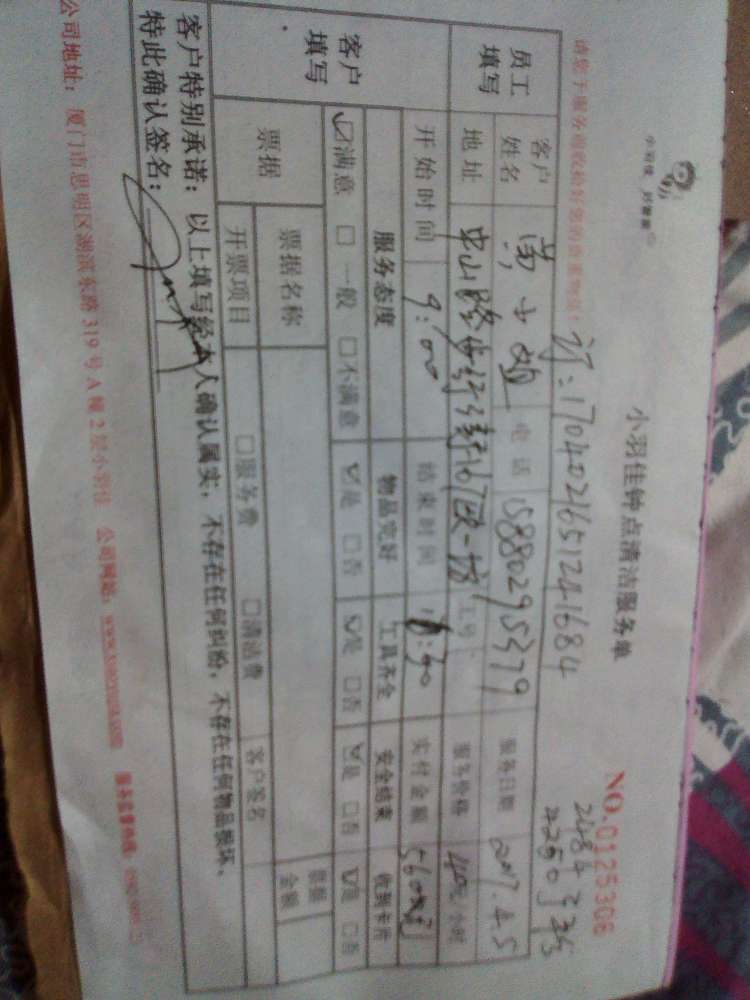 小羽佳 好管家
小羽佳钟点清洁服务单
NO.0125306
请您于服务前收拾好您的贵重物品!
订:1704021651241684
员工填写
客户姓名
小姐
电话
服务日期
2017.4.5
地址
中山路
167
工号
服务价格
40元/小时
开始时间
9:00
结束时间
:30
实付金额
560
客户填写
服务态度
物品完好
工具齐全
安全结束
收到卡片
☑满意 □一般 □不满意
☑是 □否
☑是 □否
☑是 □否
☑是 □否
票据
票据名称
票据金额
开票项目
□服务费 □清洁费
客户签名
客户特别承诺:以上填写经本人确认属实,不存在任何纠纷,不存在任何物品损坏,
特此确认签名:
公司地址:厦门市思明区湖滨东路319号A幢2层小羽佳 公司网站:
服务监督热线: